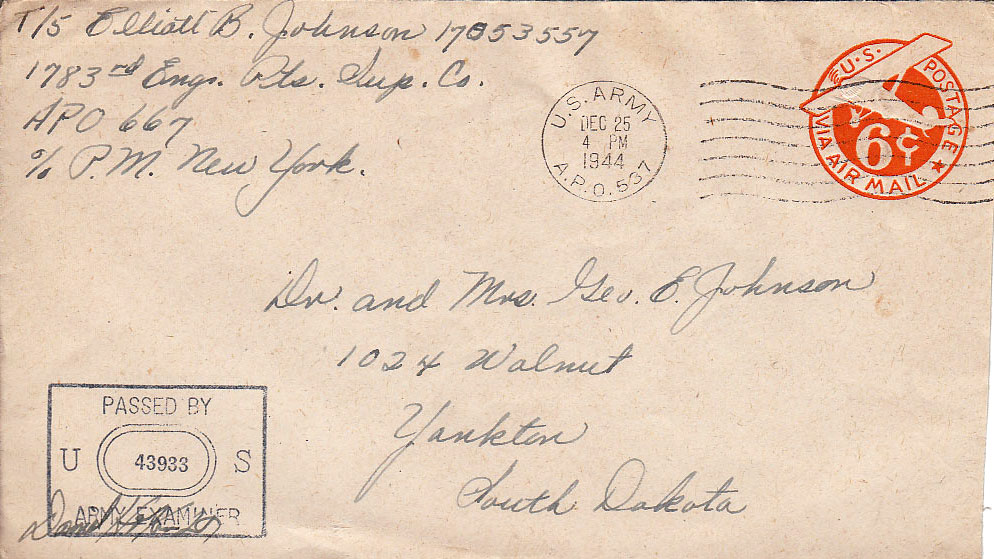 T/5 Elliott B. Johnson 17053557
1783rd Engr. Pts. Sup. Co.
APO 667
c/o P.M. New York.
U.S. ARMY
DEC 25
4 PM
1944
A.P.O. 537
U.S. POSTAGE
6¢
VIA AIR MAIL
Dr. and Mrs. Geo. E. Johnson
1024 Walnut
Yankton
South Dakota
PASSED BY
U 43933 S
ARMY EXAMINER